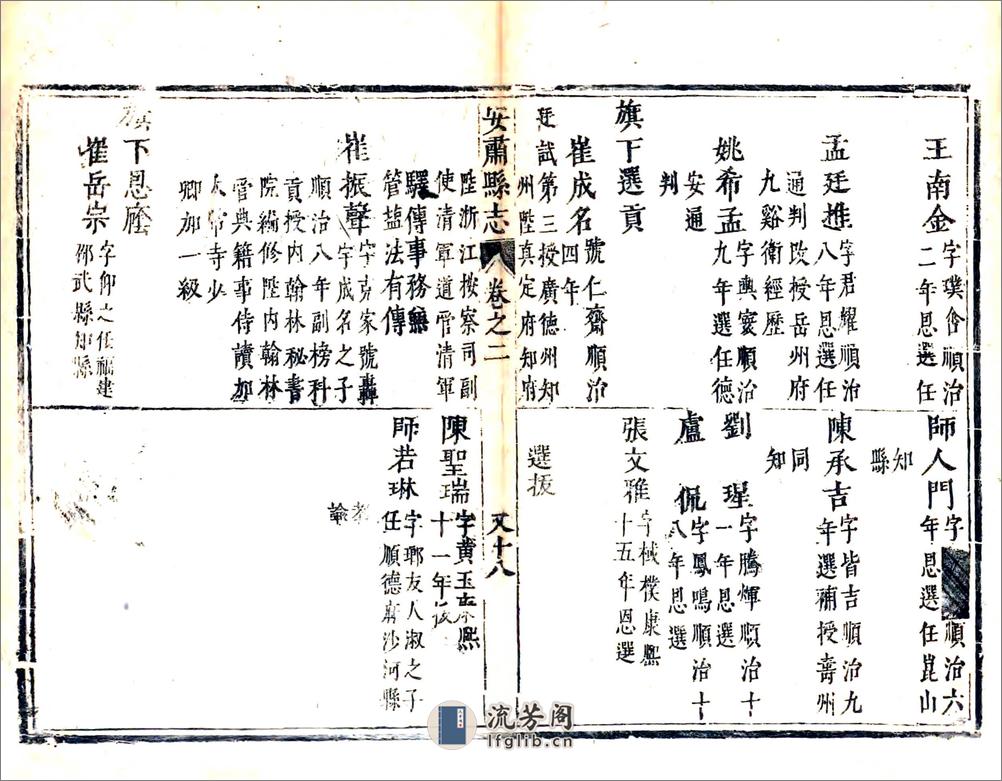 王南金字璞含順治
二年恩選任
孟廷推字君耀順治
八年恩選任
通判改授岳州府
九谿衛經歷
姚希孟字興寰順治
九年選任德
安通
判
旗下選貢
崔成名號仁齋順治
四年
廷試第三授廣德州知
州陞真定府知府
師人門字順治六
年恩選任崑山
知
縣
陳承吉字皆吉順治九
年選補授壽州
同
知
劉瑆字騰煇順治十
一年恩選
盧侃字鳳鳴順治十
八年恩選
張文雅字棫樸康熙
十五年恩選
選拔
安肅縣志
卷之二
又十八
陞浙江按察司副
使清軍道管清軍
驛傳事務兼
管鹽法有傳
崔振聲字克家號轟
宇成名之子
順治八年副榜科
貢授內翰林秘書
院編修陞內翰林
管典籍事侍讀加
太常寺少
卿加一級
旗下恩廕
崔岳宗字仰之任福建
邵武縣知縣
陳聖瑞字黄玉康熙
十一年拔
師若琳字瑯友人淑之子
任順德府沙河縣
教
諭
流芳阁
lfglib.cn